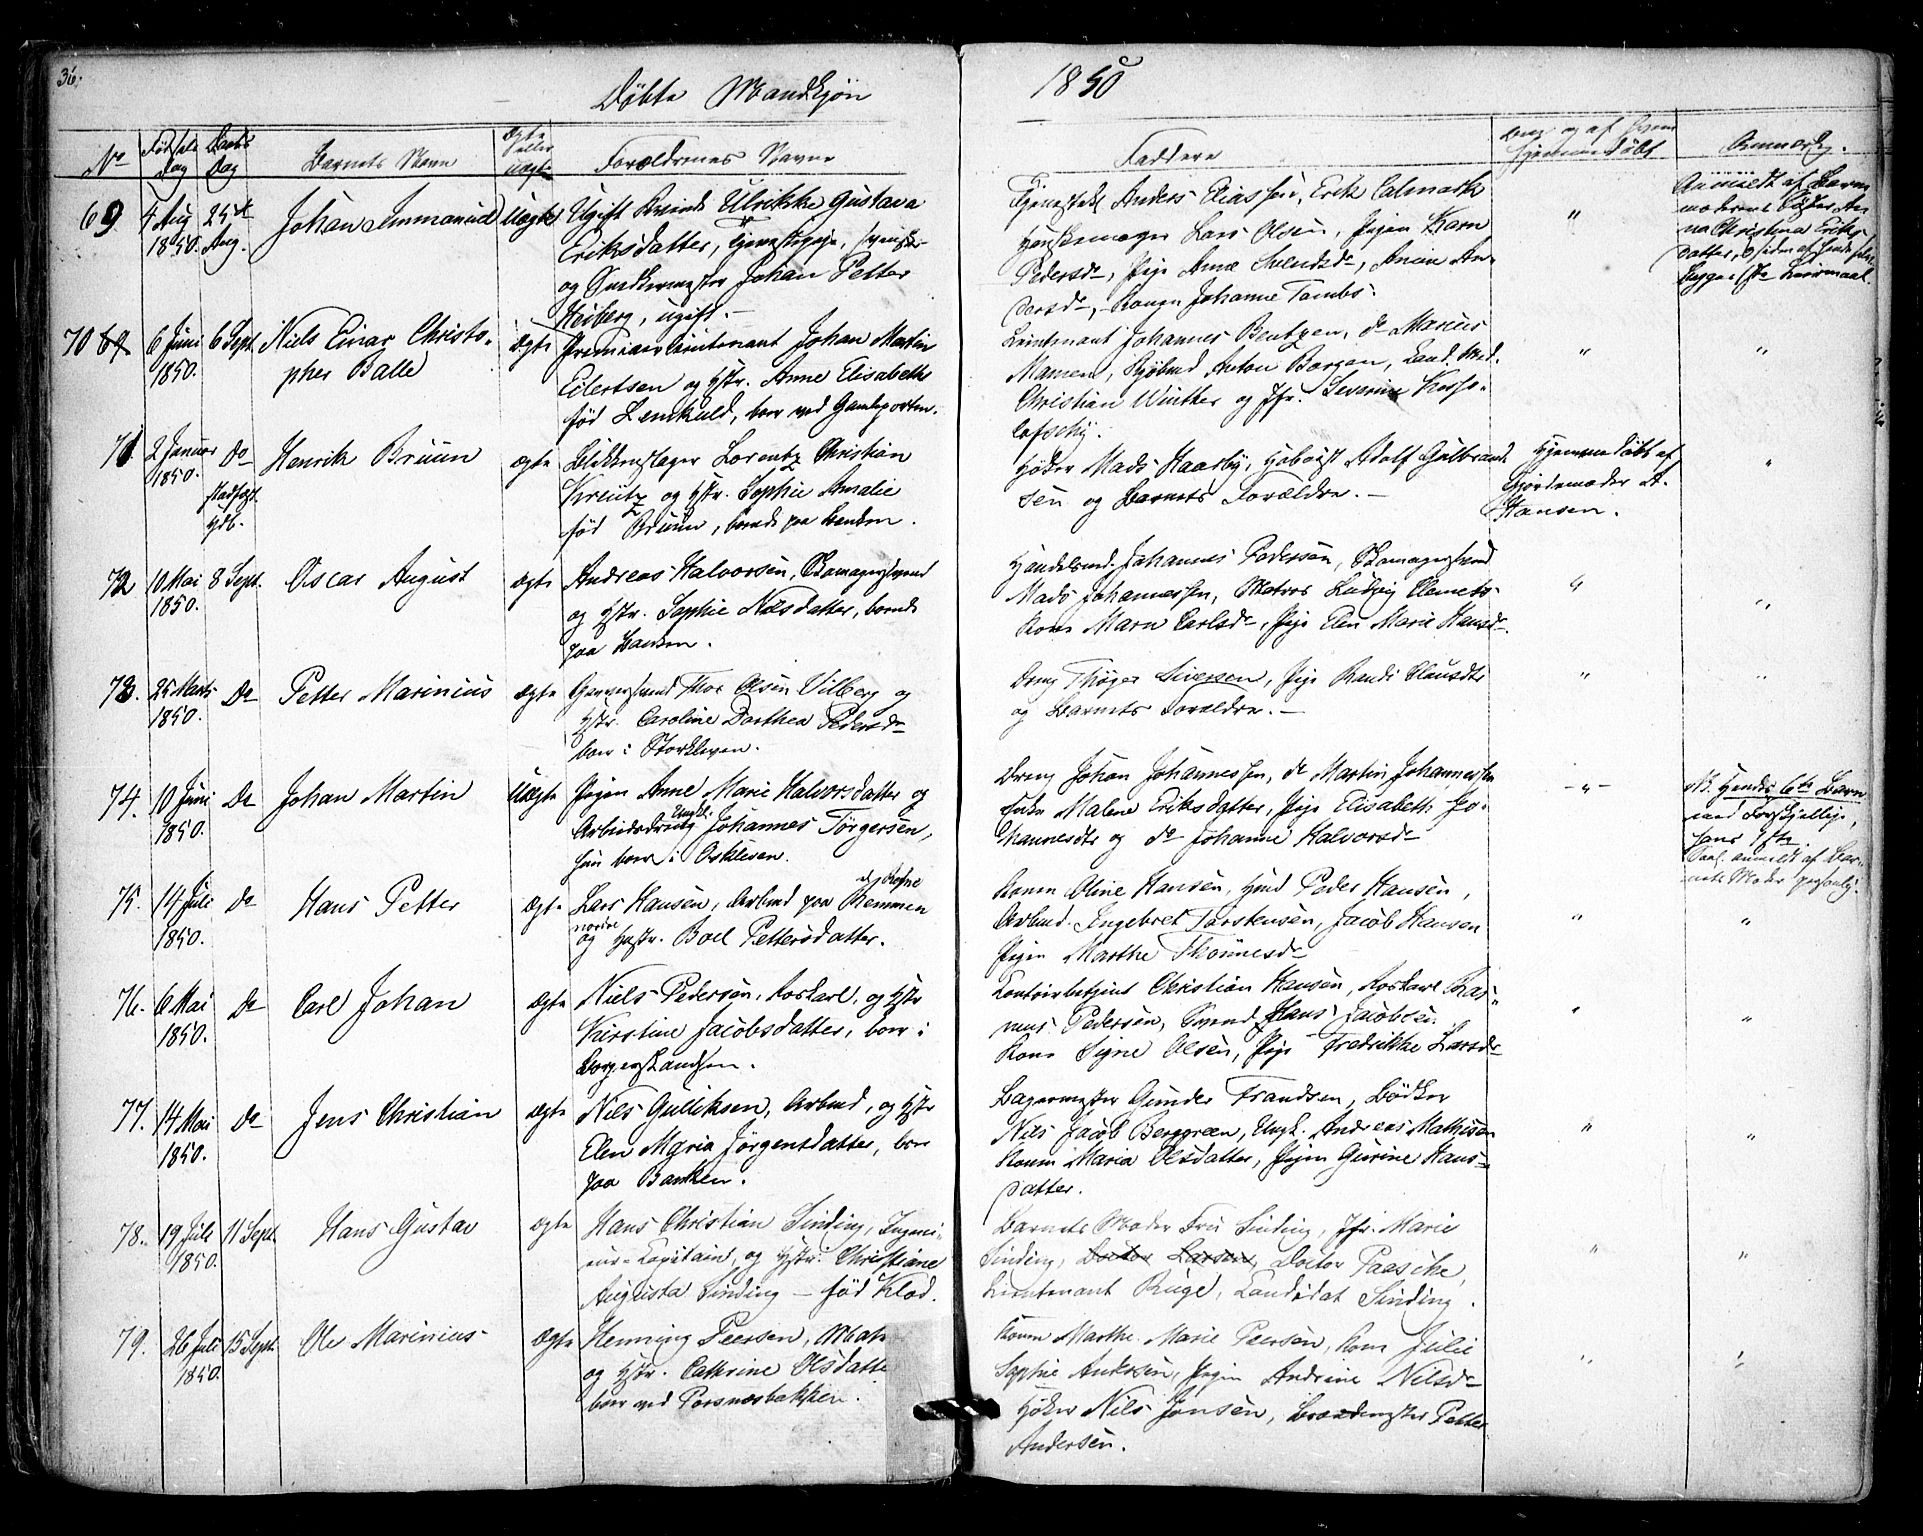 36.
Døbte Mandkjøn
1850
No
Fødsels Dag
Daabs Dag
Barnets Navn
ægte eller uægte
Forældrenes Navne
Faddere
hjemmedøbt
69
4 Aug 1850.
25de Aug.
Johan Immanuel
Uægte
Ugift Kvinde Ulrikke Gustava
Eriksdatter, Tjenestepige,
og Snedkermester Johan Petter
Heiberg, ugift.
Anders Eliassen, Erik Calmark
Lars Olsen, Pigen Karn
Pedersdr, Pige Anne Svendsdr, Anne An-
dersdr, Konen Johanne Tambs.
"
Anmeldt af Barne-
moderens Søster An-
na Christina Eriks-
datter,
70 69
6 Juni 1850.
6 Sept
Niels Einar Christo-
pher Balle
ægte
Premierlieutenant Johan Martin
Eilertsen og Hstr. Anne Elisabeth
fød Lemkuld, boer ved Gamleporten.
Lieutenant Johannes Bentzen, do Marius
Mamen, Kjøbmd Anton Borgen, Cand. Med.
Christian Winther og Jfr. Severine
"
"
71
2 Januar 1850.
Do
stadfæst. Hjdb.
Henrik Bruun
ægte
Blikkenslager Lorentz Christian
Kreutz og Hstr. Sophie Amalie
fød Bruun, boende paa Banken.
Høker Mads Haarby, Hoboist Adolf Gulbrand-
sen og Barnets Forældre. -
Hjemmedøbt af
Gjordemoder A.
Hansen.
"
72
10 Mai 1850.
8 Sept.
Oscar August
ægte
Andreas Halvorsen, Skomagersvend
og Hstr. Sophie Nilsdatter, boende
paa Banken.
Handelsmd. Johannes Pedersen, Skomagersvend
Mads Johannessen, Matros Ludvig Clemets-
Kone Marn Carlsdr, Pige Elen Marie Hansdr.
"
"
73.
25 Marts 1850.
Do
Petter Marinius
ægte
Garversvend Thor Olsen Vilberg og
Hstr. Caroline Dorthea Pedersdr
boer i Storkleven.
Dreng Thøger Sivertsen, Pige Randi Clausdtr
og Barnets Forældre. -
"
"
74.
10 Juni 1850.
Do
Johan Martin
Uægte
Pigen Anne Marie Halvorsdatter og
Ungk.
Arbeidsdreng Johannes Törgersen,
hun boer i Oskleven.
Dreng Johan Johannessen, do Martin Johannessen
Enke Malene Eriksdatter, Pige Elisabeth Jo-
hannesdtr og do Johanne Halvorsdr
- " -
NB. Hendes 6te Barn
med Forskjellige,
hans 1ste.
anmeldt af Bar-
nets Moder personlig.
75.
14 Juli 1850.
Do
Hans Petter
ægte
Lars Hansen, Arbmd paa Remmen
nordre
og Hustr. Boel Pettersdatter.
Konen Oline Hansen, Hmd Peder Hansen,
Arbmd. Ingebret Torstensen, Jacob Hansen
Pigen Marthe Thønnesdr
"
"
76.
6 Mai 1850.
Do
Carl Johan
ægte
Niels Pedersen, Roskarl, og Hstr
Kirstine Jacobsdatter, boer i
Borgerskandsen.
Contoirbetjent Christian Hansen, Roskarl Ras-
mus Pedersen, Svend Hans Jacobsen
Kone Signe Olsen, Pige Fredrikke Larsdr
"
"
77.
14 Mai 1850.
Do
Jens Christian
ægte
Nils Gulliksen, Arbmd, og Hstr
Elen Maria Jörgensdatter, boer
paa Banken.
Bagermester Gunder Frandsen, Bødker
Nils Jacob Berggreen, Ungk. Andreas Mathisen
Konen Maria Olsdatter, Pigen Gurine Hans-
datter.
"
"
78.
19 Juli 1850.
11 Sept.
Hans Gustav
ægte
Hans Christian Sinding, Ingeni-
eur-Capitain, og Hstr. Christiane
Augusta Sinding - fød Klod.
Barnets Moder Fru Sinding, Jfr. Marie
Sinding, Doctor Larsen, Doctor Paasche,
Lieutenant Ruge, Candidat Sinding.
"
"
79.
26 Juli 1850.
15 Sept.
Ole Marinius
ægte
Henning Peersen, Mat
og Hstr. Cathrine Olsdatte
boer ved Porsnæsbakken.
Konen Marthe Marie Peersen, Kone Julie
Sophie Ankersen, Pigen Andrine Nilsdr
Høker Nils Jonsen, Brandmester Petter
Andersen.
"
"